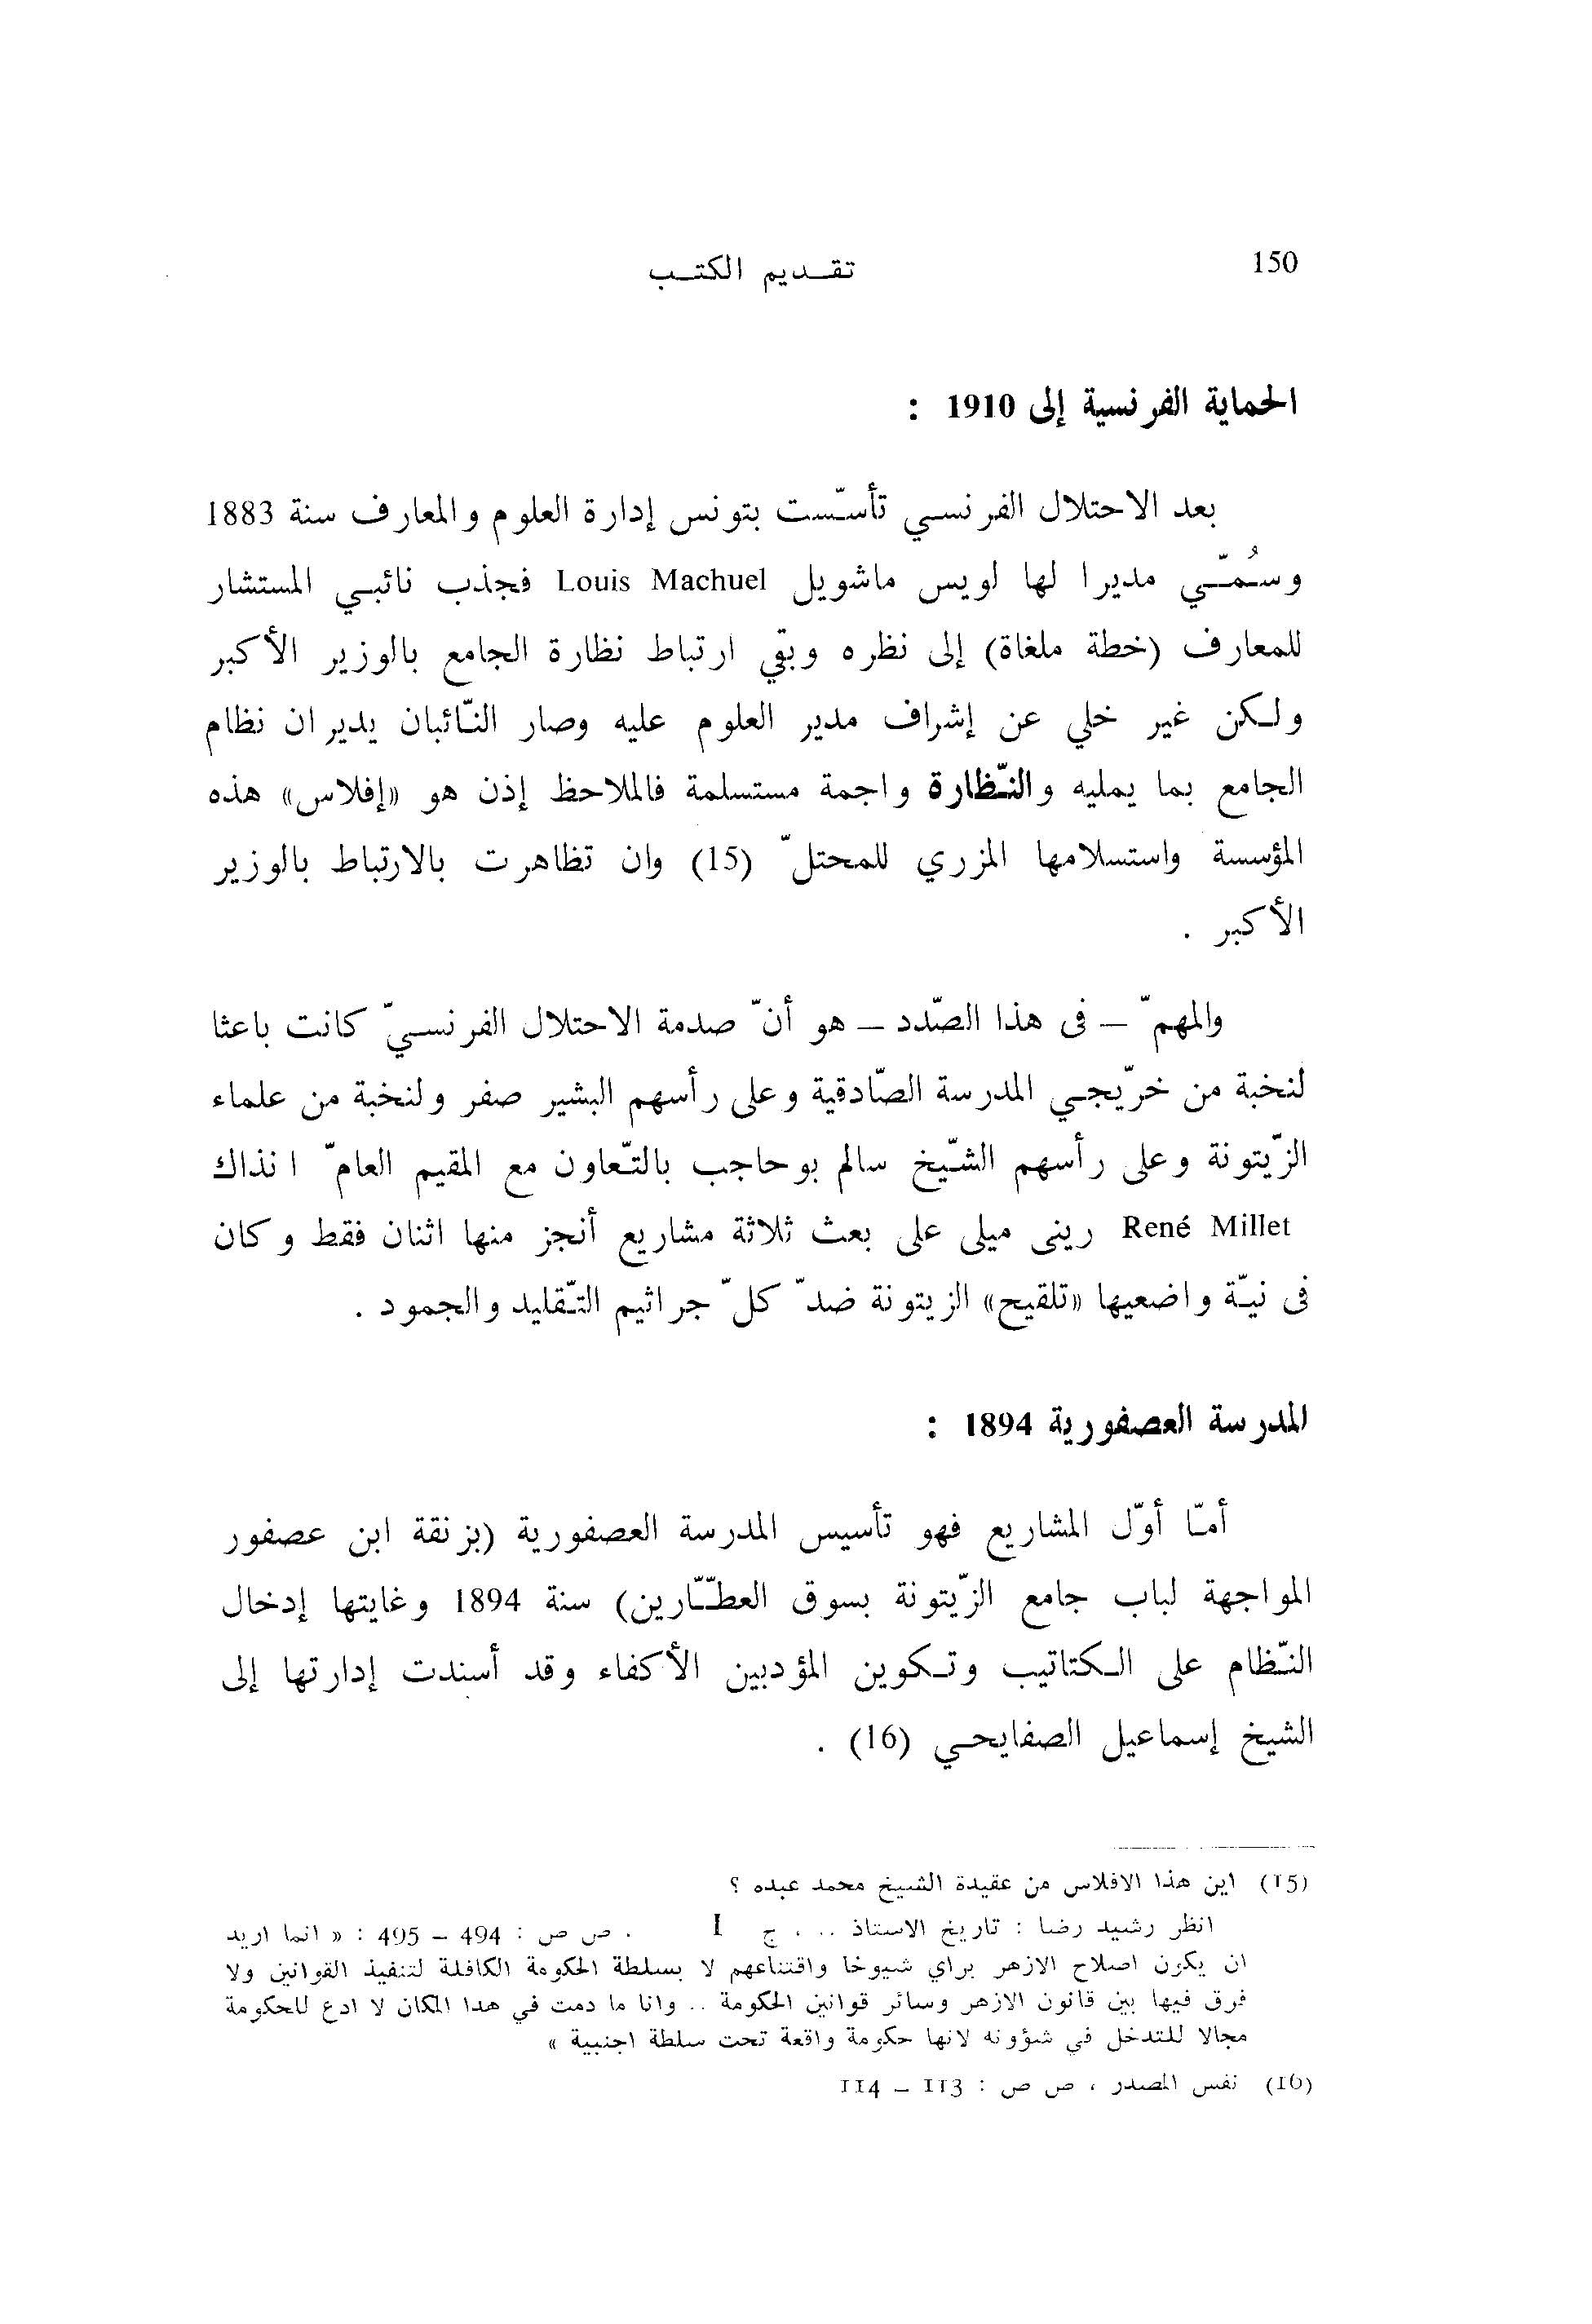 150
تقـديم الكتـب
الحماية الفرنسية إلى 1910 :
بعد الاحتلال الفرنسي تأسّست بتونس إدارة العلوم والمعارف سنة 1883
وسُمّي مديرا لها لويس ماشويل Louis Machuel فجذب نائبي المستشار
للمعارف (خطة ملغاة) إلى نظره وبقي ارتباط نظارة الجامع بالوزير الأكبر
ولكن غير خلي عن إشراف مدير العلوم عليه وصار النّائبان يديران نظام
الجامع بما يمليه والنّظارة واجمة مستسلمة فالملاحظ إذن هو «إفلاس» هذه
المؤسسة واستسلامها المزري للمحتلّ (15) وان تظاهرت بالارتباط بالوزير
الأكبر .
والمهمّ – فى هذا الصّدد – هو أنّ صدمة الاحتلال الفرنسيّ كانت باعثا
لنخبة من خرّيجي المدرسة الصّادقية وعلى رأسهم البشير صفر ولنخبة من علماء
الزّيتونة وعلى رأسهم الشّيخ سالم بوحاجب بالتّعاون مع المقيم العامّ انذاك
René Millet رينى ميلى على بعث ثلاثة مشاريع أنجز منها اثنان فقط وكان
فى نيّة واضعيها «تلقيح» الزيتونة ضدّ كلّ جراثيم التّقليد والجمود .
المدرسة العصفورية 1894 :
أمّا أوّل المشاريع فهو تأسيس المدرسة العصفورية (بزنقة ابن عصفور
المواجهة لباب جامع الزّيتونة بسوق العطّارين) سنة 1894 وغايتها إدخال
النّظام على الكتاتيب وتكوين المؤدبين الأكفاء وقد أسندت إدارتها إلى
الشيخ إسماعيل الصفايحي (16) .
(15) اين هذا الافلاس من عقيدة الشيخ محمد عبده ؟
انظر رشيد رضا : تاريخ الاستاذ .. ، ج I . ص ص : 494 – 495 : « انما اريد
ان يكون اصلاح الازهر براي شيوخا واقتناعهم لا بسلطة الحكومة الكافلة لتنفيذ القوانين ولا
فرق فيها بين قانون الازهر وسائر قوانين الحكومة .. وانا ما دمت في هذا المكان لا ادع للحكومة
مجالا للتدخل في شؤونه لانها حكومة واقعة تحت سلطة اجنبية »
(16) نفس المصدر ، ص ص : 113 – 114